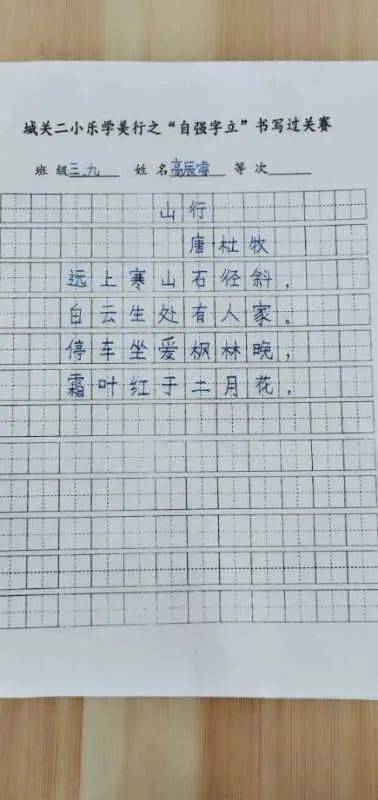 城关二小乐学美行之“自强字立”书写过关赛
班级三.九 姓名高辰睿 等次
山行
唐·杜牧
远上寒山石径斜，
白云生处有人家。
停车坐爱枫林晚，
霜叶红于二月花。